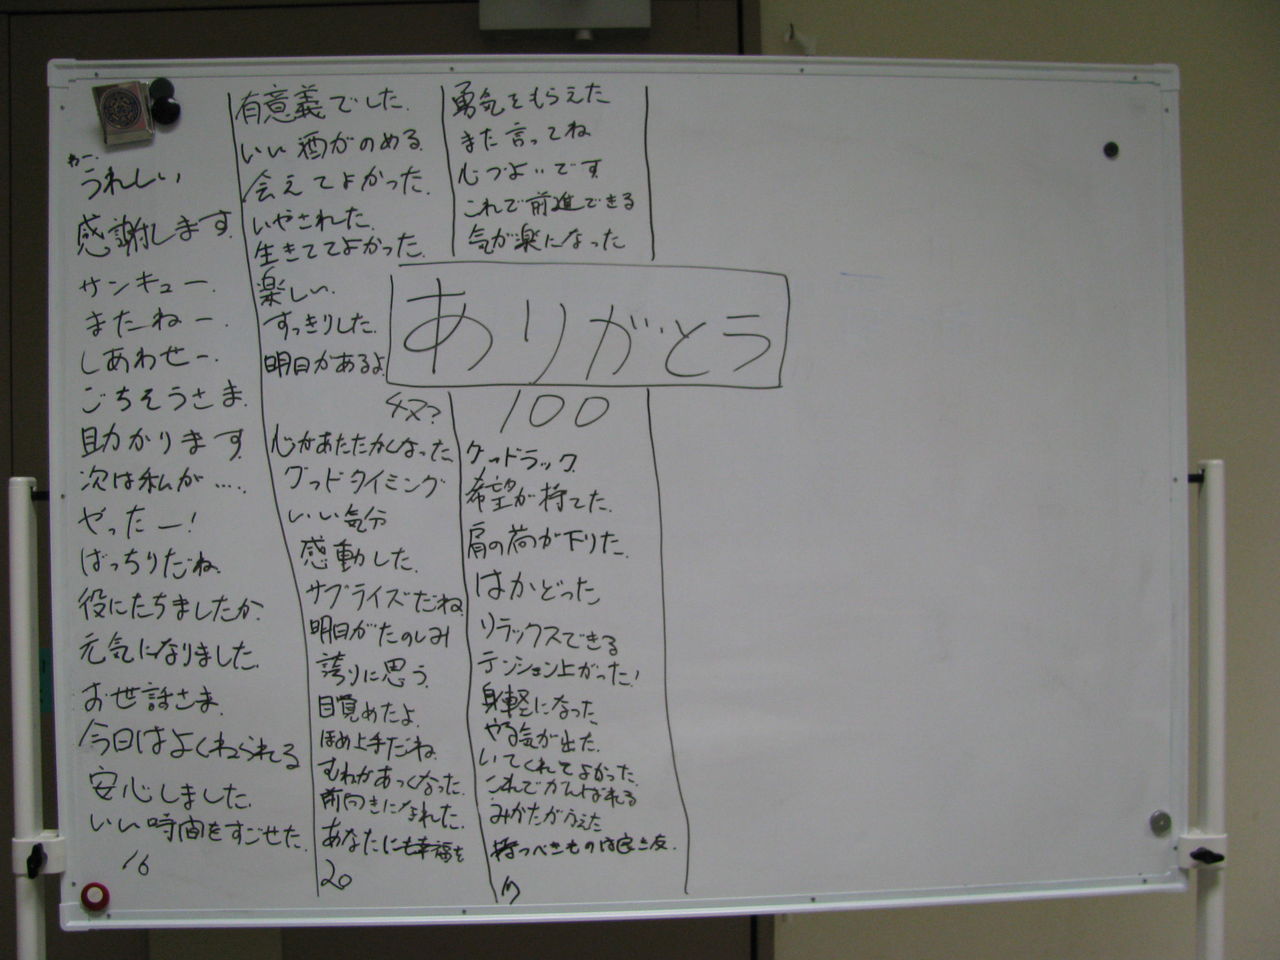 わー、
うれしい
感謝します。
サンキュー。
またねー。
しあわせー。
ごちそうさま
助かります
次は私が‥‥
やったー!
ばっちりだね
役にたちましたか。
元気になりました。
お世話さま
今日はよくねられる
安心しました。
いい時間をすごせた。
16
有意義でした。
いい酒がのめる
会えてよかった。
いやされた。
生きててよかった。
楽しい。
すっきりした。
明日があるよ
心があたたかくなった
グッドタイミング
いい気分
感動した。
サプライズだね
明日がたのしみ
誇りに思う。
目覚めたよ。
ほめ上手だね
むねがあつくなった。
前向きになれた。
あなたにも幸福を
20
勇気をもらえた
また言ってね
心づよいです
これで前進できる
気が楽になった
ありがとう
100
グッドラック
希望が持てた。
肩の荷が下りた。
はかどった
リラックスできる
テンション上がった!
身軽になった
やる気が出た。
いてくれてよかった
これでがんばれる
みかたがふえた
持つべきものは良き友。